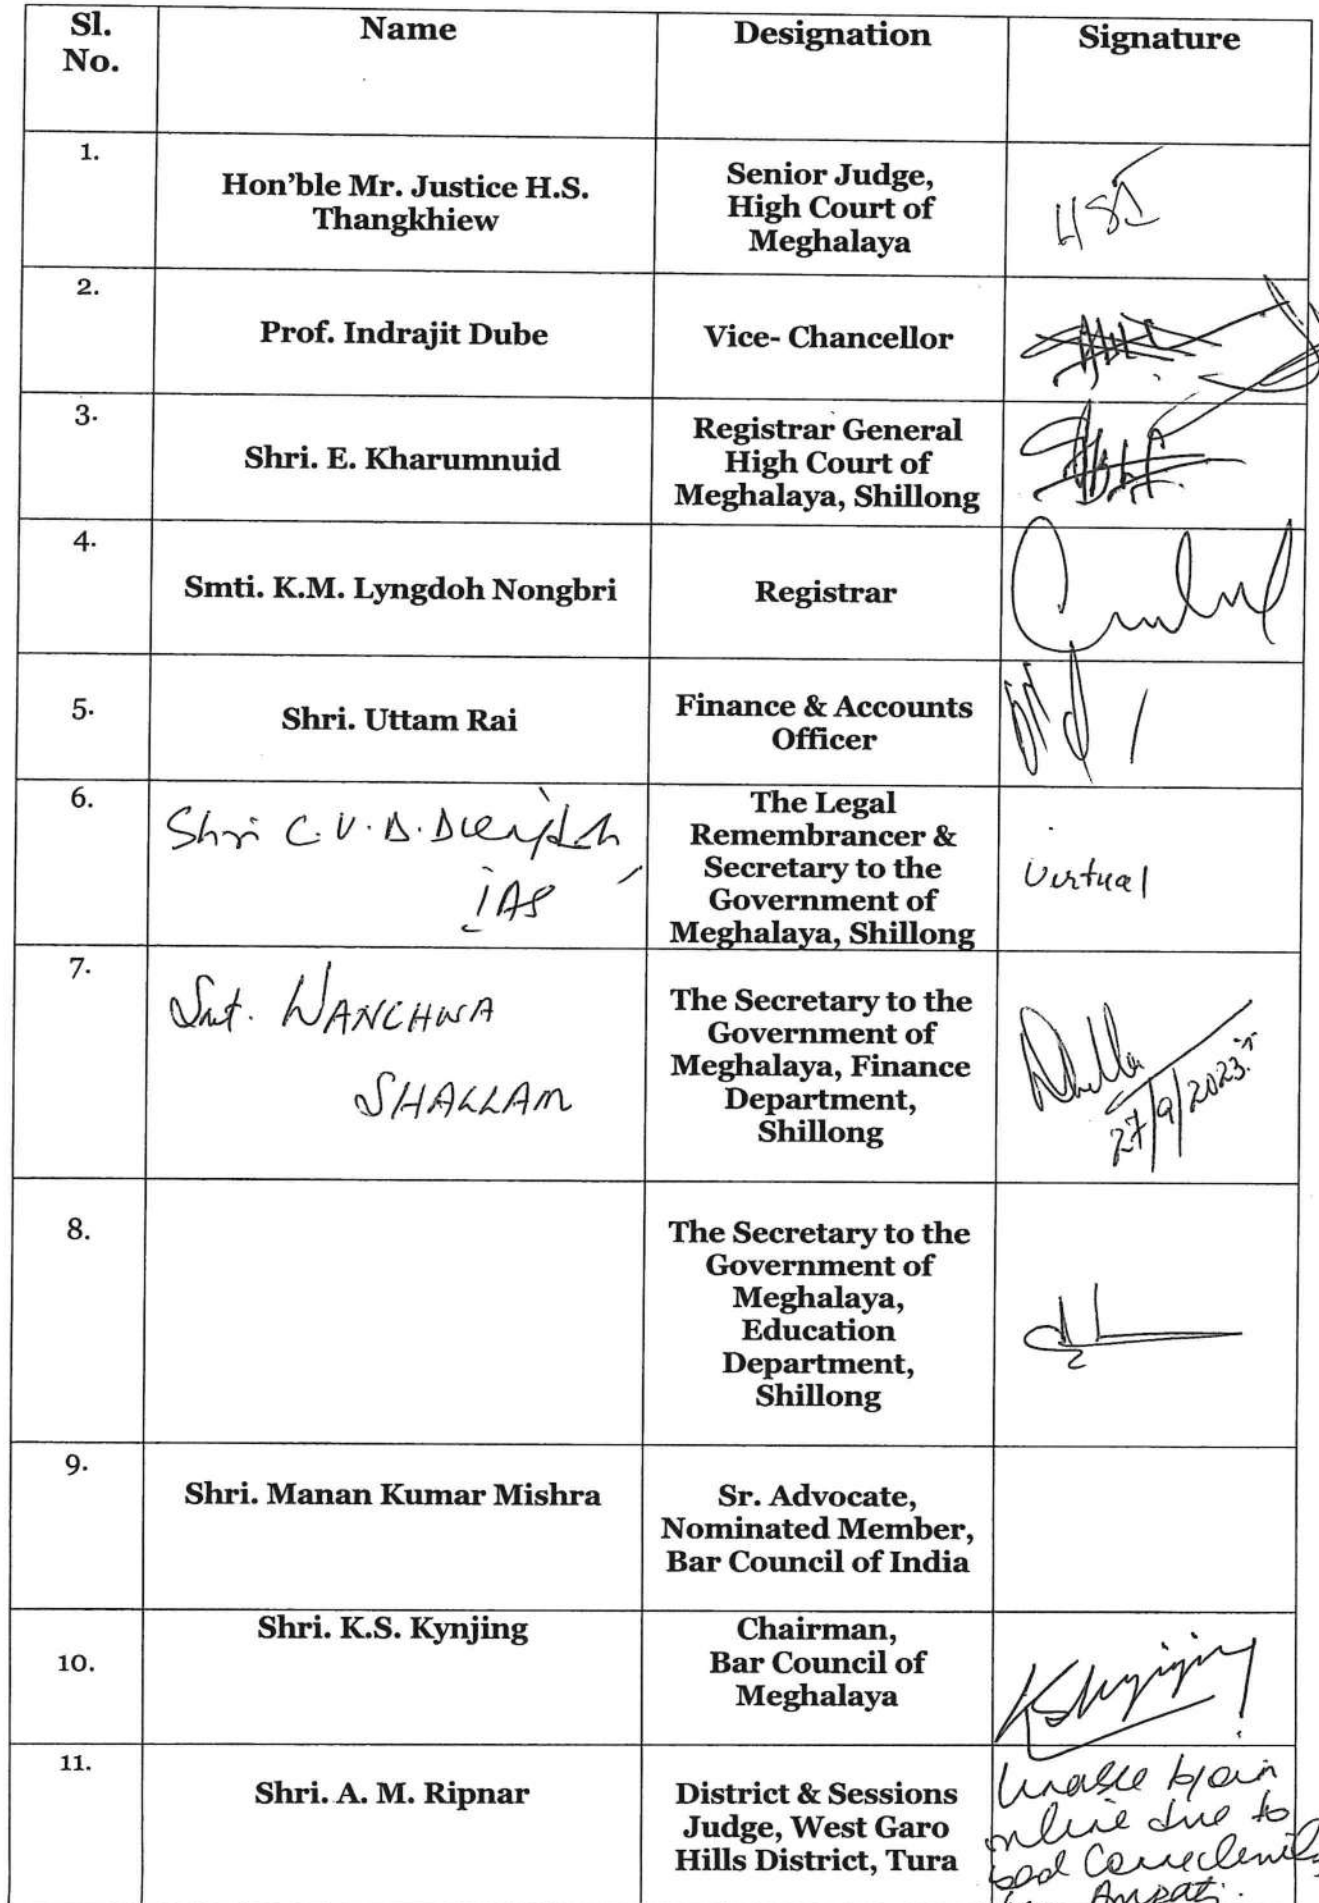 Sl.
No.
Name
Designation
Signature
1.
Hon'ble Mr. Justice H.S.
Thangkhiew
Senior Judge,
High Court of
Meghalaya
HST
2.
Prof. Indrajit Dube
Vice- Chancellor
3.
Shri. E. Kharumnuid
Registrar General
High Court of
Meghalaya, Shillong
4.
Smti. K.M. Lyngdoh Nongbri
Registrar
5.
Shri. Uttam Rai
Finance & Accounts
Officer
6.
Shri C.V.D.
IAS
The Legal
Remembrancer &
Secretary to the
Government of
Meghalaya, Shillong
Virtual
7.
Smt. WANCHWA
SHALLAM
The Secretary to the
Government of
Meghalaya, Finance
Department,
Shillong
27/9/2023
8.
The Secretary to the
Government of
Meghalaya,
Education
Department,
Shillong
9.
Shri. Manan Kumar Mishra
Sr. Advocate,
Nominated Member,
Bar Council of India
10.
Shri. K.S. Kynjing
Chairman,
Bar Council of
Meghalaya
11.
Shri. A. M. Ripnar
District & Sessions
Judge, West Garo
Hills District, Tura
Unable to join
online due to
bad